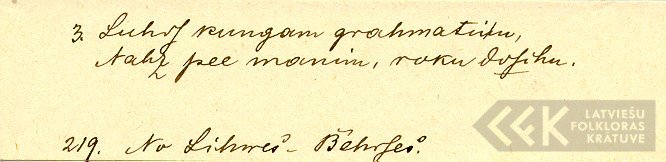 3. Luhdſ kungam grahmatiņu,
Nahz pee manim, roku doſchu.
219. No Lihwes-Behrſes.
LATVIEŠU
FOLKLORAS
KRĀTUVE